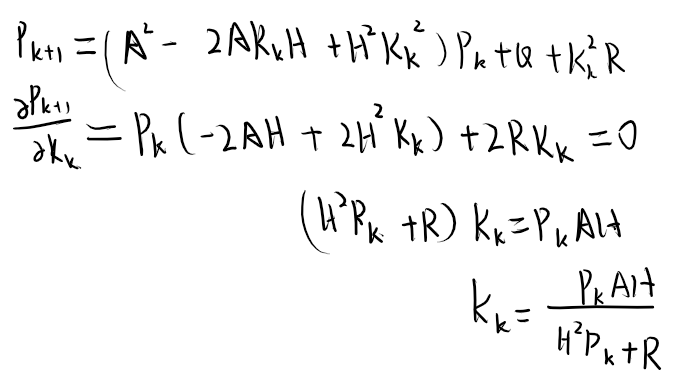 P_{k+1} = (A² - 2AK_kH + H²K_k²) P_k + Q + K_k²R
∂P_{k+1}/∂K_k = P_k (-2AH + 2H²K_k) + 2RK_k = 0
(H²P_k + R) K_k = P_kAH
K_k = P_kAH / (H²P_k + R)